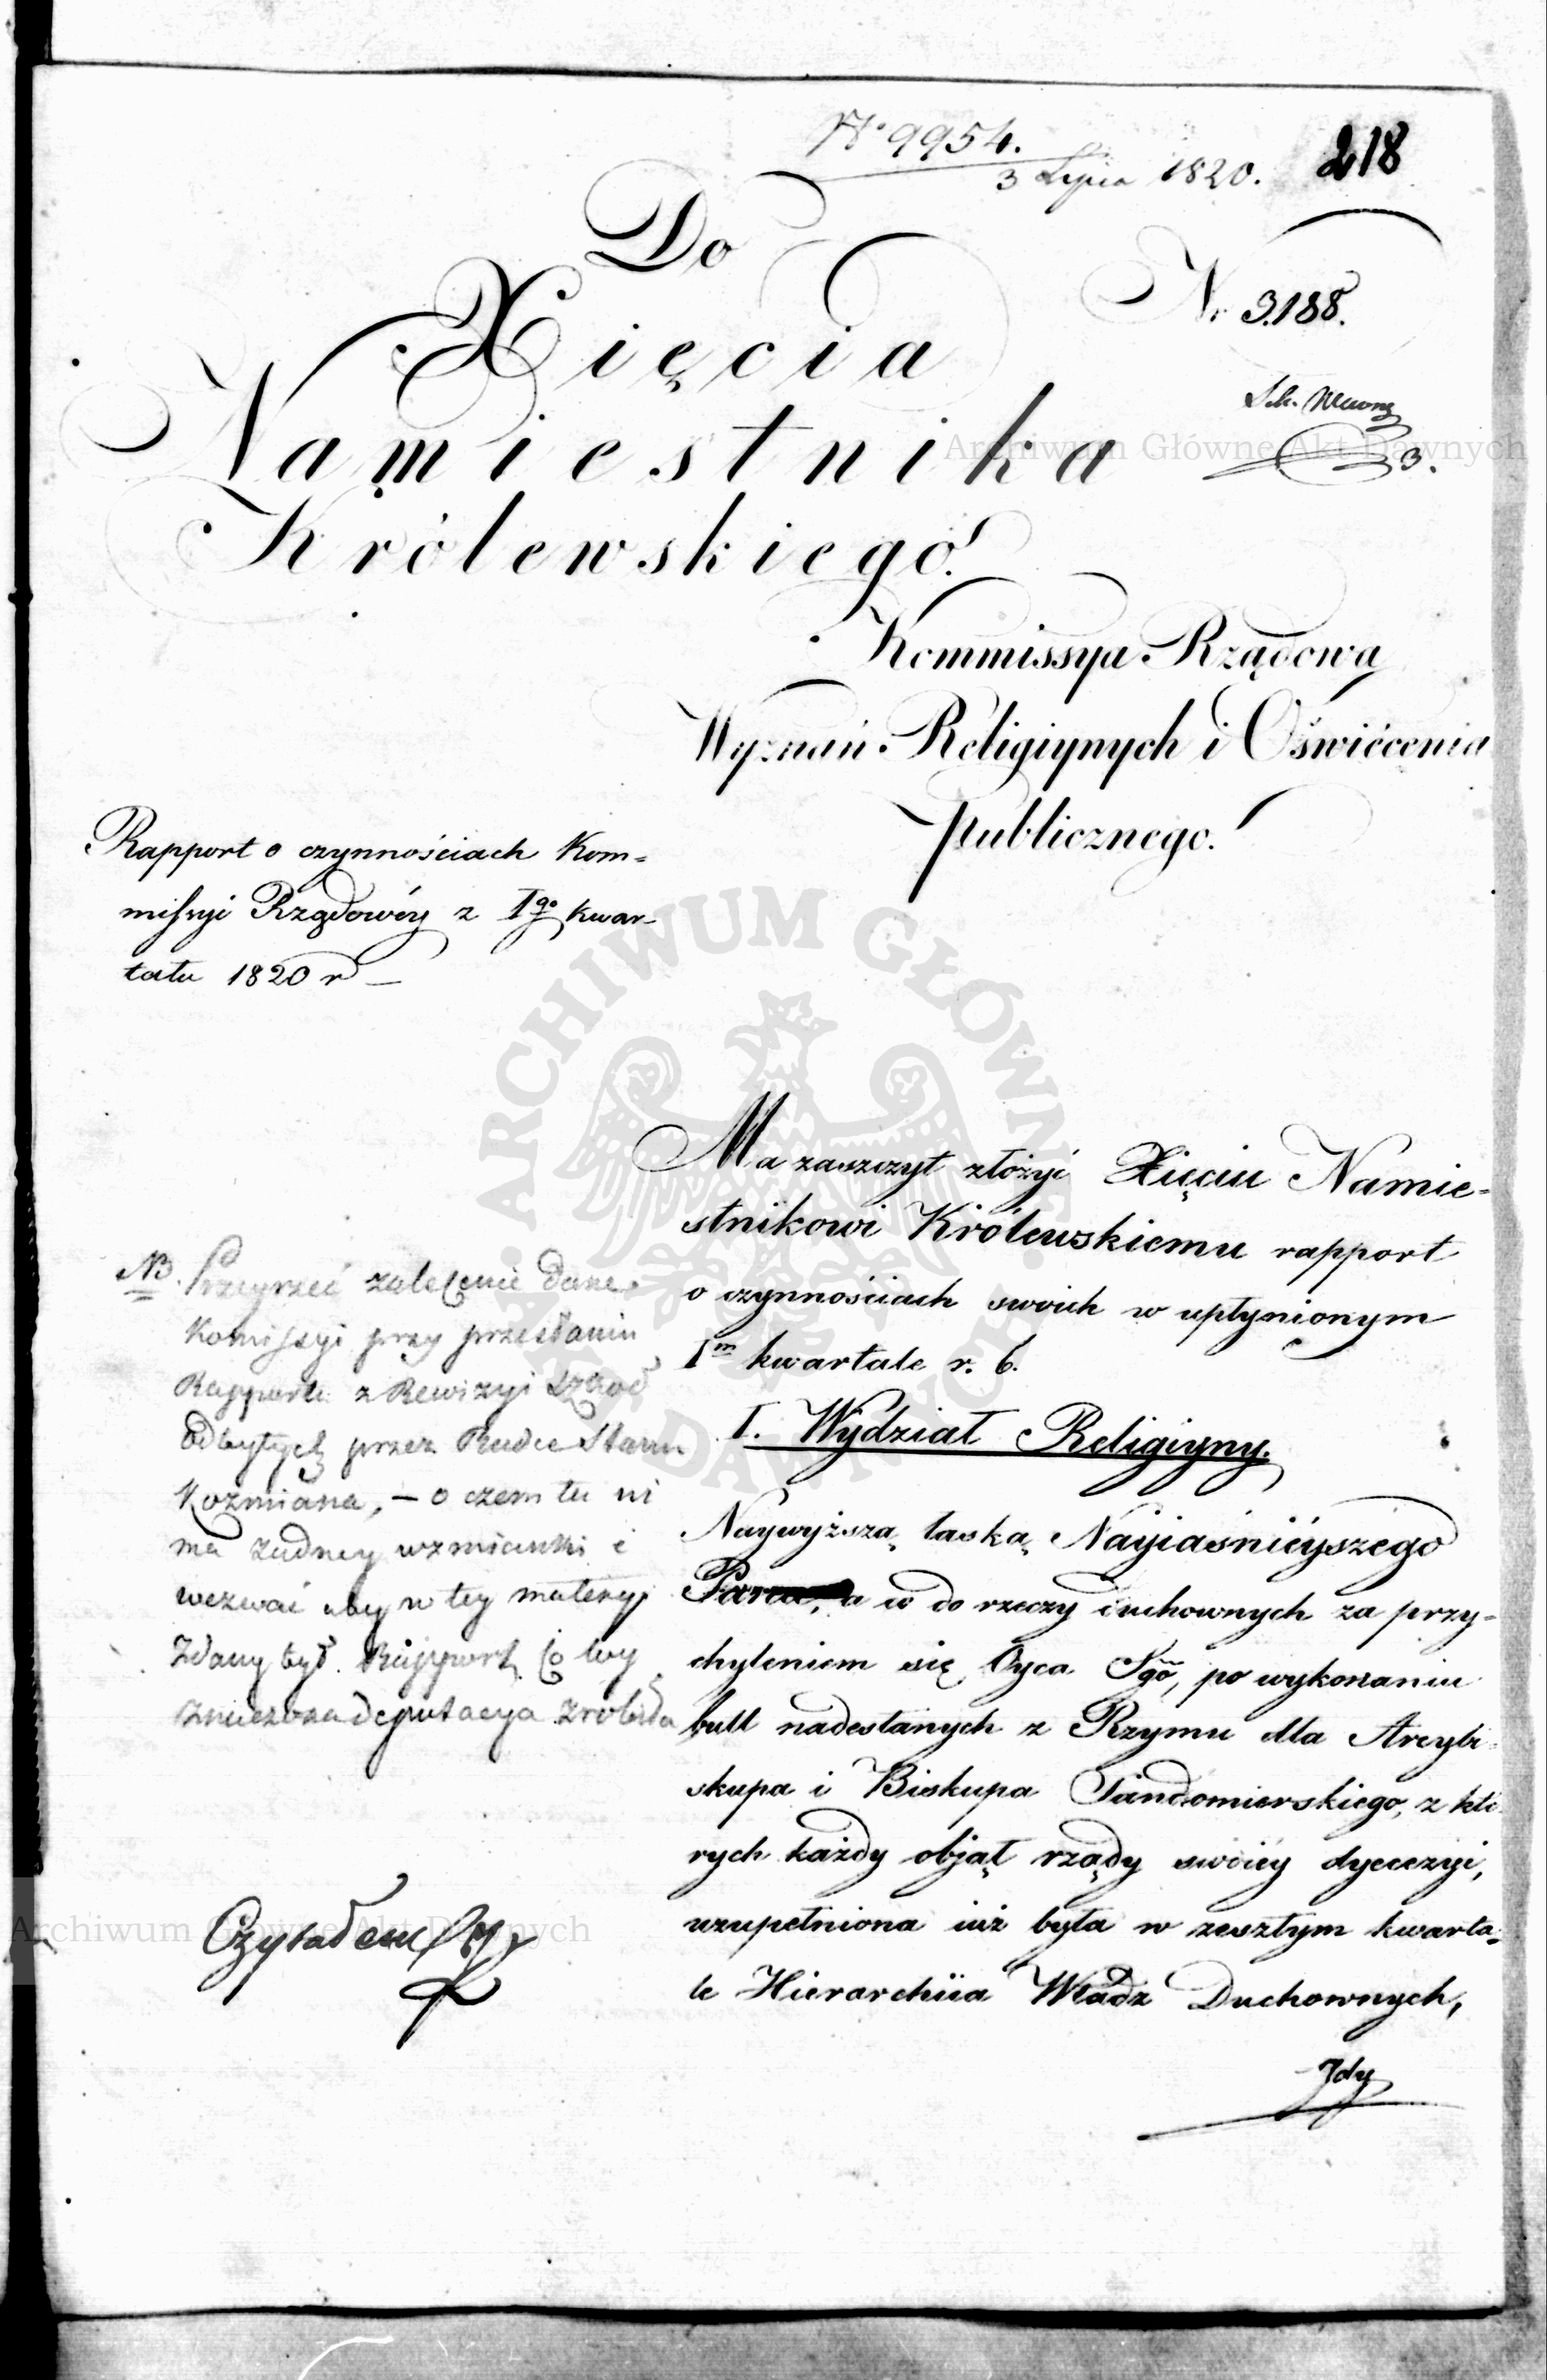 № 9954.
3 Lipca 1820.
218
Do
Xięcia
Namiestnika
Królewskiego.
Nr 3188.
3.
Kommissya Rządowa
Wyznań Religiynych i Oświécenia
Publicznego.
Rapport o czynnościach Kom=
missyi Rządowéy z Igo kwar-
tału 1820 r –
Ma zaszczyt złożyć Xięciu Namie=
stnikowi Królewskiemu rapport
o czynnościach swoich w upłynionym
Im kwartale r. b.
I. Wydział Religiyny.
Naywyższą łaską Nayiaśniéyszego
Pana, a co do rzeczy duchownych za przy=
chyleniem się Oyca Sgo, po wykonaniu
bull nadesłanych z Rzymu dla Arcybi=
skupa i Biskupa Sandomierskiego, z któ
rych każdy objął rządy swoiéy dyecezyi,
uzupełniona iuż była w zeszłym kwarta=
le Hierarchiia Władz Duchownych,
Gdy
NB. Przeyrzeć zalecenie dane
Komissyi przy przesłaniu
Rapportu z Rewizyi Szkół
odbytych przez Radce Stanu
Koźmiana, – o czem tu ni
ma żadney wzmianki i
wezwać aby w tey materyi
zdany był Rapport co tey
znaczona deputacya zrobiła
Czytałem
ARCHIWUM GŁÓWNE AKT DAWNYCH
Archiwum Główne Akt Dawnych
Archiwum Główne Akt Dawnych